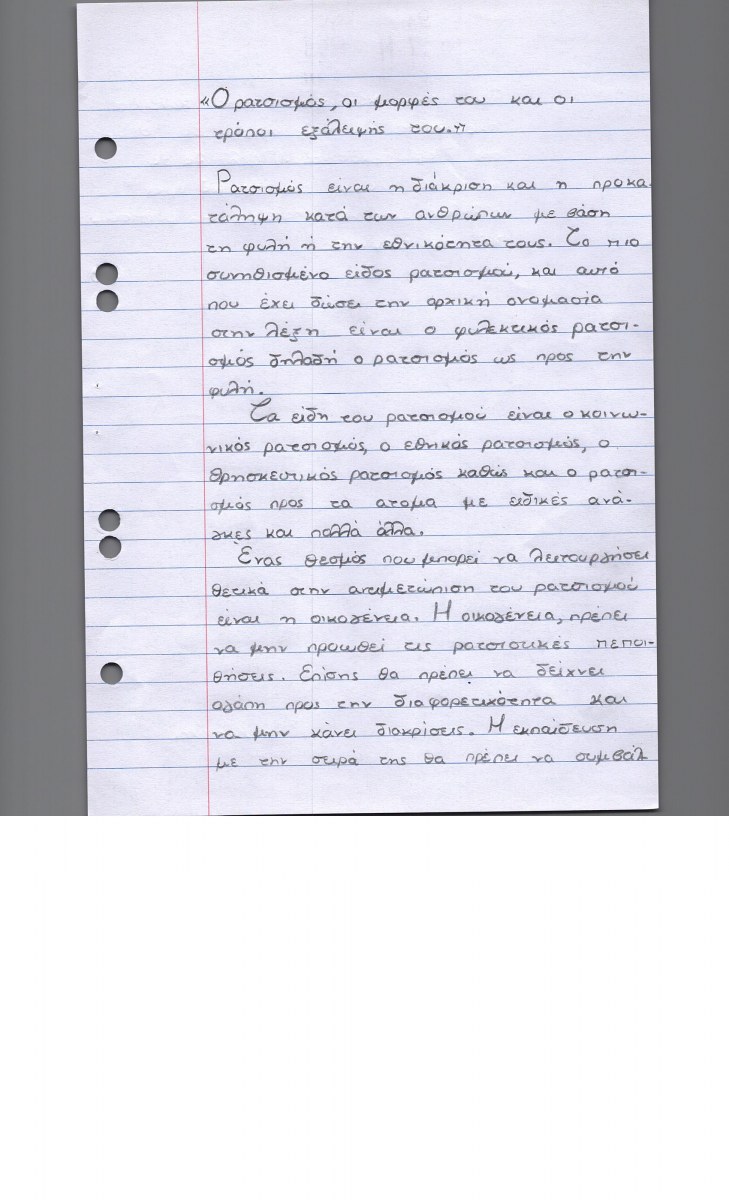 «Ο ρατσισμός, οι μορφές του και οι
τρόποι εξάλειψής του.»
Ρατσισμός είναι η διάκριση και η προκα
τάληψη κατά των ανθρώπων με βάση
τη φυλή ή την εθνικότητα τους. Το πιο
συνηθισμένο είδος ρατσισμού, και αυτό
που έχει δώσει την αρχική ονομασία
στην λέξη είναι ο φυλεκτικός ρατσι-
σμός δηλαδή ο ρατσισμός ως προς την
φυλή.
Τα είδη του ρατσισμού είναι ο κοινω-
νικός ρατσισμός, ο εθνικός ρατσισμός, ο
θρησκευτικός ρατσισμός καθώς και ο ρατσι-
σμός προς τα ατομα με ειδικές ανά-
γκες και πολλά άλλα.
Ένας θεσμός που μπορεί να λειτουργήσει
θετικά στην αντιμετώπιση του ρατσισμού
είναι η οικογένεια. Η οικογένεια, πρέπει
να μην προωθεί τις ρατσιστικές πεποι-
θήσεις. Επίσης θα πρέπει να δείχνει
αγάπη προς την διαφορετικότητα και
να μην κάνει διακρίσεις. Η εκπαίδευση
με την σειρά της θα πρέπει να συμβάλ